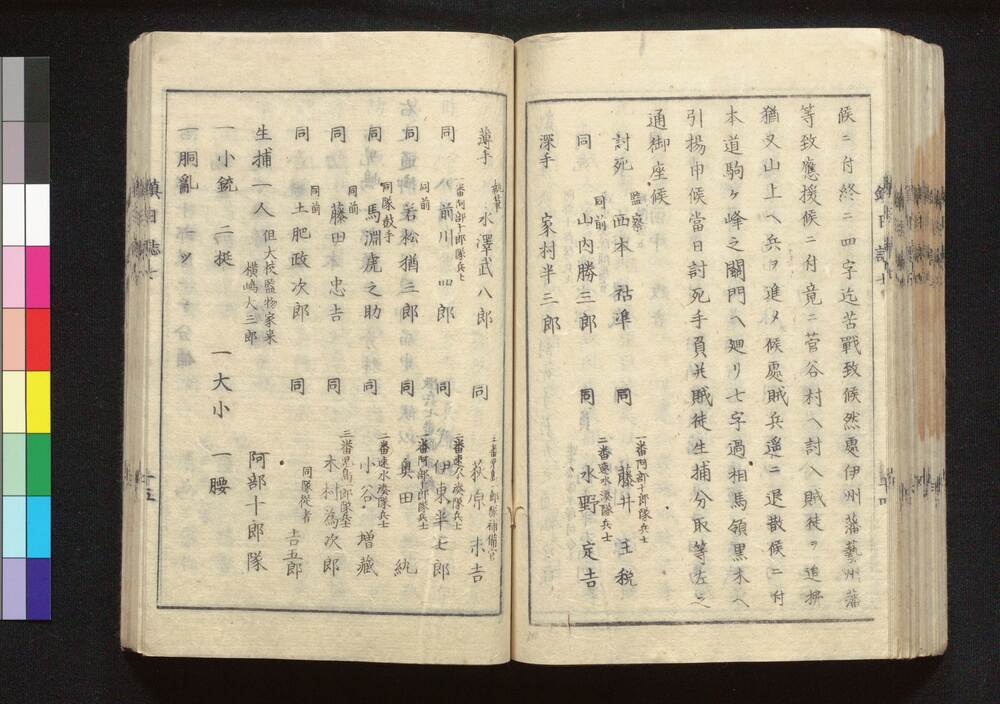 候ニ付終ニ四字迄苦戰致候然處伊州藩藝州藩
等致應援候ニ付竟ニ菅谷村ヘ討入賊徒ヲ追拂
猶又山上ヘ兵ヲ進メ候處賊兵遥ニ退散候ニ付
本道駒ヶ峰之關門ヘ廻リ七字過相馬領黒木ヘ
引揚申候當日討死手負并賊徒生捕分取等左之
通御座候
監察
討死 西本祜準
一番阿部十郎隊兵士
同 藤井主税
同前
同 山内勝三郎
二番速水湊隊兵士
同 水野定吉
深手 家村半三郎
執筆
薄手 水澤武八郎
三番児島一郎隊補備官
同 荻原末吉
一番阿部十郎隊兵士
同 前川四郎
二番速水湊隊兵士
同 伊東半七郎
同前
同 若松猶三郎
一番阿部十郎隊兵士
同 奥田 紈
同隊鼓手
同 馬淵虎之助
二番速水湊隊兵士
同 小谷増藏
同前
同 藤田忠吉
三番児島一郎隊兵士
同 木村為次郎
同前
同 土肥政次郎
同隊従者
同 吉五郎
生捕一人 但大枝監物家来
横嶋大三郎
阿部十郎隊
一小銃 二挺 一大小 一腰
一胴亂 一ツ
鎮日誌七
十五